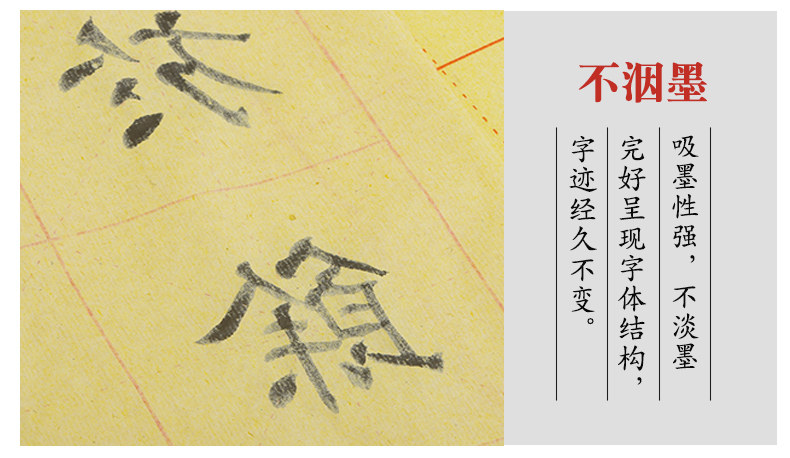 不洇墨
吸墨性强，不淡墨
完好呈现字体结构，
字迹经久不变。